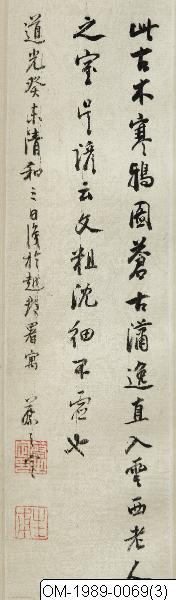 此古木寒鴉圖蒼古瀟逸直入雲西老人
之室是諺云文粗沈細不虛也
道光癸未清和三日後於越 署寓
OM-1989-0069(3)